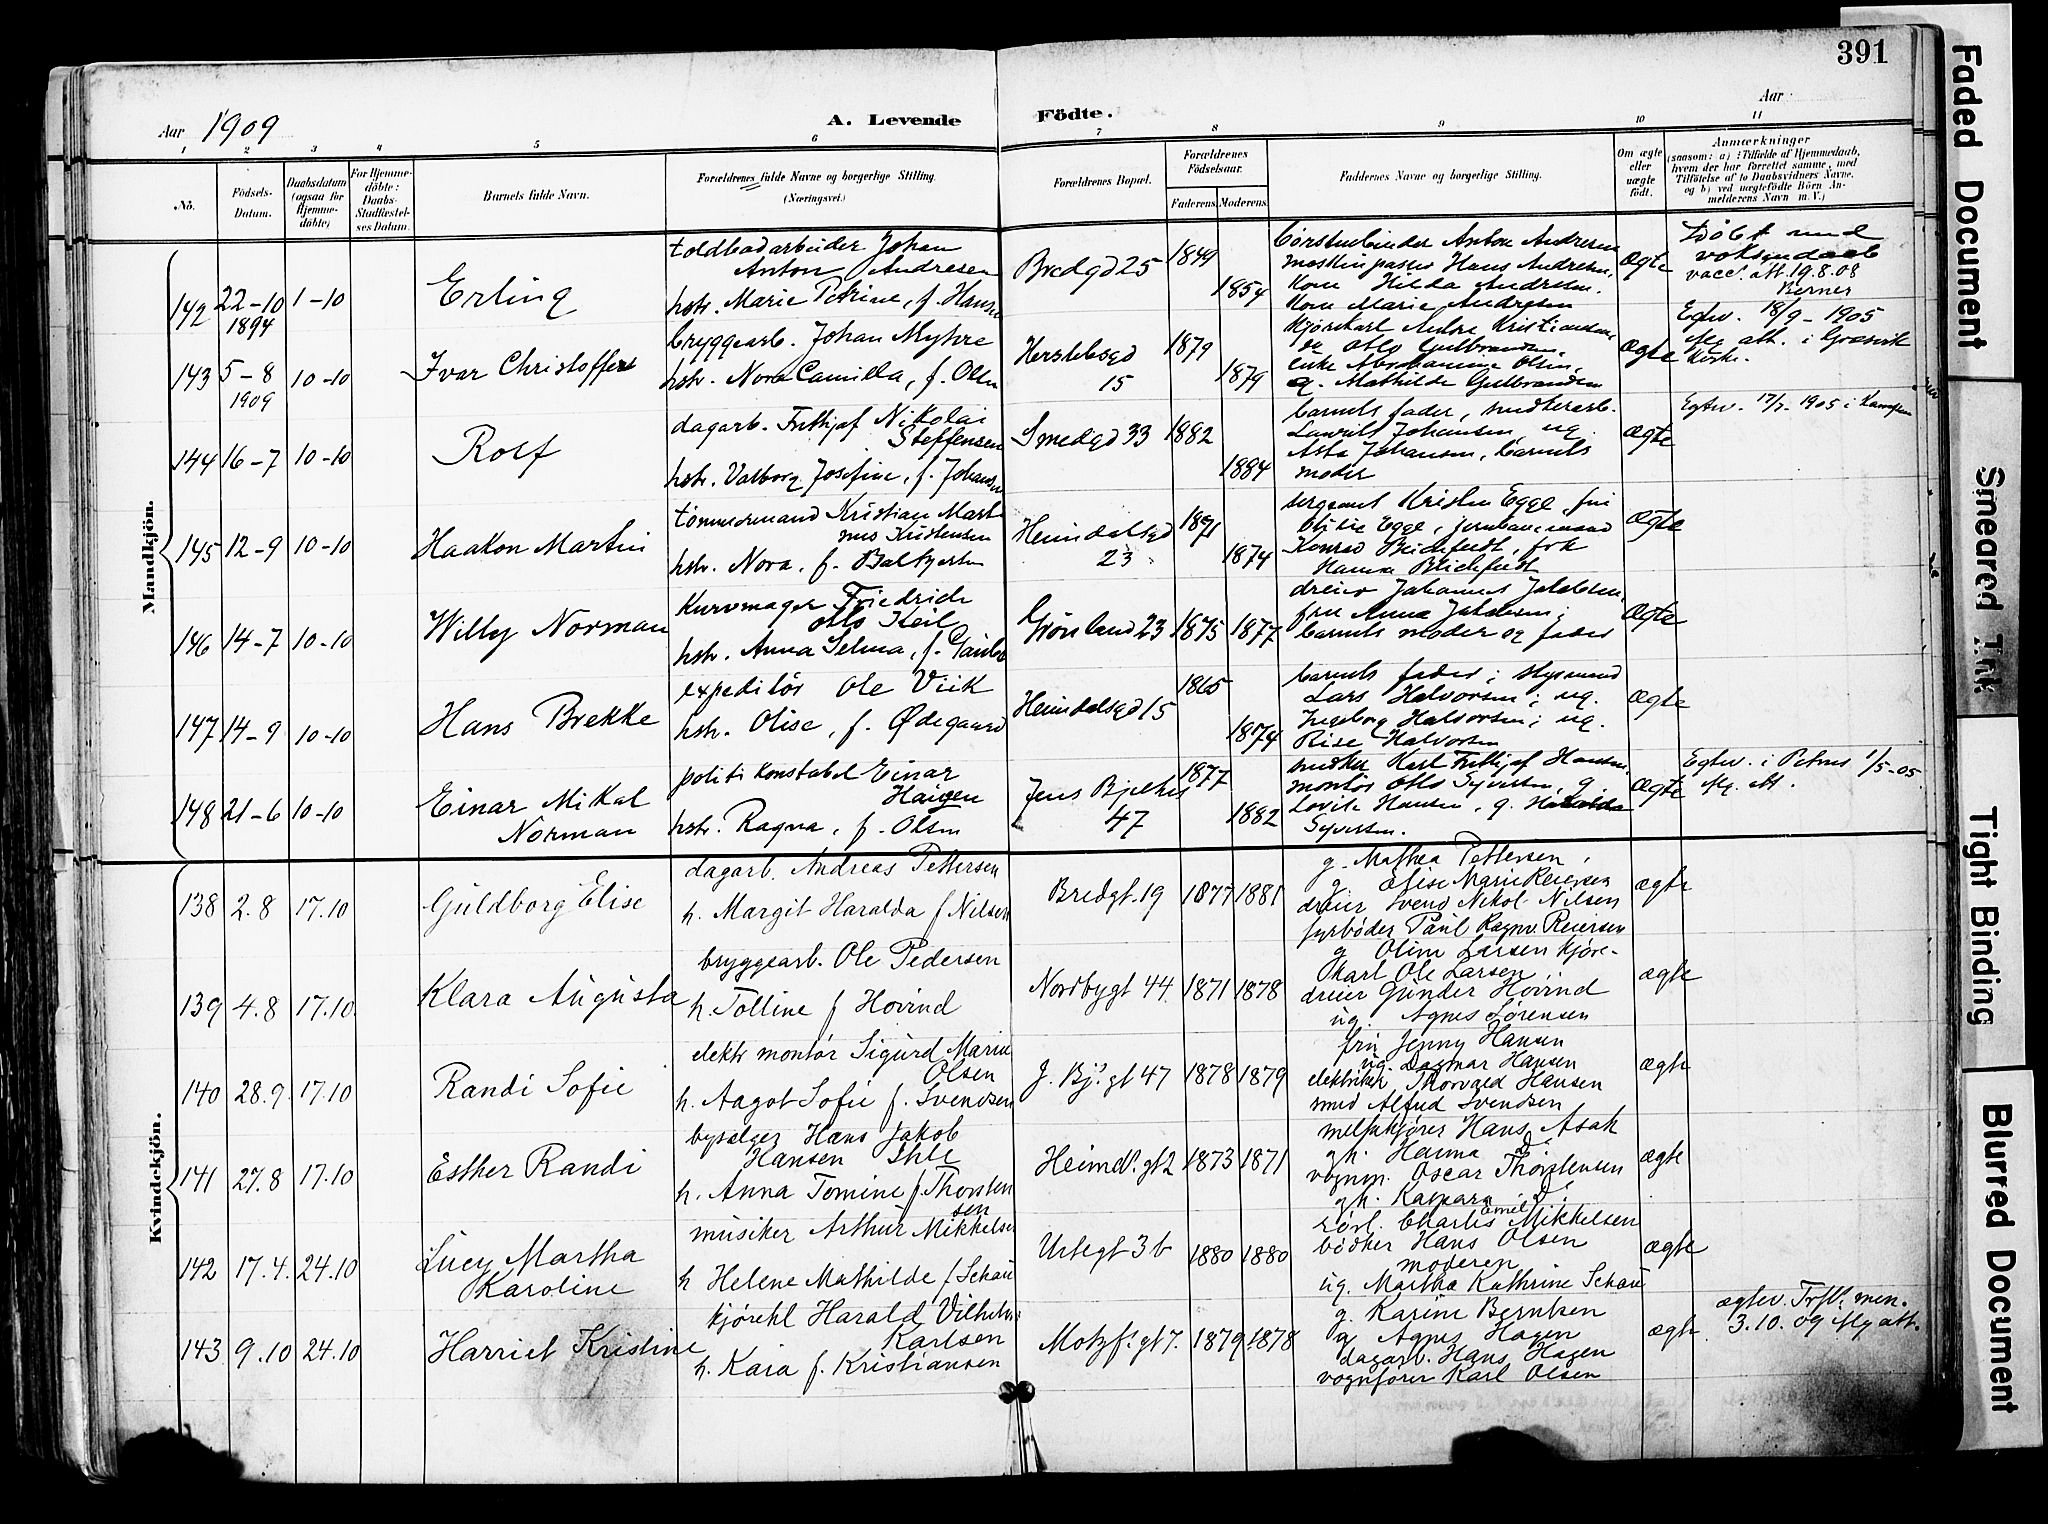 391
Aar 1909
A. Levende
Födte.
Aar
1 2 3 4 5 6 7 8 9 10 11
No.
Födsels-Datum.
Daabsdatum (ogsaa for Hjemme-döbte)
For Hjemme-döbte: Daabs-Stadfæstel-ses Datum.
Barnets fulde Navn.
Forældrenes fulde Navne og borgerlige Stilling. (Næringsvei.)
Forældrenes Bopæl.
Forældrenes Födselsaar.
Faderens. Moderens.
Faddernes Navne og borgerlige Stilling.
Om ægte eller uægte födt.
Anmærkninger
(saasom: a) i Tilfælde af Hjemmedaab, hvem der har forrettet samme, med Tilföielse af to Daabsvidners Navne, og b) ved uægtefödte Börn An-melderens Navn m. V.)
Mandkjön.
142 22-10 1894 1-10 Erling
toldbodarbeider Johan
Anton Andresen
hstr. Marie Petrine, f. Hansen
Bredgd 25 1849 1854
börstenbinder Anton Andresen
maskinpasser Hans Andresen,
Kone Hilda Andresen.
Kone Marie Andresen
ægte
Döbt med
voksendaab
vacc. att. 19.8.08
Berner
143 5-8 1909 10-10 Ivar Christoffer
bryggearb. Johan Myhre
hstr. Nora Camilla, f. Olsen
Herslebsgd 15 1879 1879
Kjørekarl Andre Kristiansen,
Otto Gulbrandsen,
enke Abrahamine Olsen,
g. Mathilde Gulbrandsen
ægte
Egtev. 18/9-1905
Mg. att. i Græsvik
Kirke.
144 16-7 10-10 Rolf
dagarb. Frithjof Nikolai
Steffensen
hstr. Valborg Josefine, f. Johansen
Smedgd 33 1882 1884
barnets fader, snedkerarb.
Laurits Johansen ug.
Asta Johansen, barnets
moder
ægte
Egtev. 17/7-1905 i Kampen
145 12-9 10-10 Haakon Martin
tömmermand Kristian Marti-
nus Kristensen
hstr. Nora, f.
Heimdalsgd 23 1871 1874
sergeant Kristen Egge, fru
Egge, jernbanemand
Konrad Blichfeldt, frk
Hanna Blichfeldt
ægte
146 14-7 10-10 Willy Norman
Kurvmager Friedrich
Otto Keil
hstr. Anna Selma, f.
Grönland 23 1875 1877
dreier Johannes Jakobsen,
fru Anna Jakobsen;
barnets moder og fader
ægte
147 14-9 10-10 Hans Brekke
expeditör Ole Viik
hstr. Olise, f. Ødegaard
Heimdalsgd 15 1865 1874
barnets fader;
Lars Halvorsen; ug.
Ingeborg Halvorsen; ug.
Rise Halvorsen
ægte
148 21-6 10-10 Einar Mikal
Norman
politikonstabel Einar
Haigen
hstr. Ragna, f. Olsen
Jens Bjelkes 47 1877 1882
snedker Karl Frithjof Hansen,
montör Otto Syversen, g.
Lovise Hansen, g.
Syversen.
ægte
Egtev. i Petrus 1/5-05
Mg. att.
Kvindekjön.
138 2.8 17.10 Guldborg Elise
dagarb. Andreas Pettersen
h. Margit Haralda f Nilsen
Bredgt. 19 1877 1881
g. Mathea Pettersen,
g Elise Marie Reiersen
dreier Svend Nikol. Nilsen
fyrböder Paul Ragnv. Reiersen
ægte
139 4.8 17.10. Klara Augusta
bryggearb. Ole Pedersen
h. Tolline f Hovind
Nordbygt 44. 1871 1878
g Oline Larsen kjöre-
karl Ole Larsen
dreier Gunder Hovind
ug. Agnes Lörensen
ægte
140 28.9. 17.10 Randi Sofie
elektr montör Sigurd Marin
Olsen
h. Aagot Sofie f. Svendsen
J. Bj. gt 47 1878 1879
fru Jenny Hansen
ug. Dagmar Hansen
elektriker Thorvald Hansen
smed Alfred Svendsen
ægte
141 27.8 17.10 Esther Randi
bysælger Hans Jakob
Hansen Ihle
h. Anna Tomine f. Thorsten
sen
Heimd. gt 2 1873 1871
melkekjörer Hans Asak
gh. Hanna Do
vognm. Oscar Thorstensen
gh. Kaspara Do
ægte
142 17.4. 24.10 Lucy Martha
Karoline
musiker Arthur Mikkelsen
h Helene Mathilde f Schau
Urtegt 3b 1880 1880
rörl. Charles Emil Mikkelsen
bödker Hans Olsen
moderen
ug. Martha Kathrine Schau
ægte
143 9.10 24.10 Harriet Kristine
kjörekl Harald Vilhelm
Karlsen
h. Kaia f. Kristiansen
Motzf. gt 7. 1879 1878
g. Karine Berntsen
g Agnes Hagen
dagarb. Hans Hagen
vognförer Karl Olsen
ægte
ægtev. Trfl. men.
3.10. og Mg att.
Faded Document
Smeared Ink
Tight Binding
Blurred Document